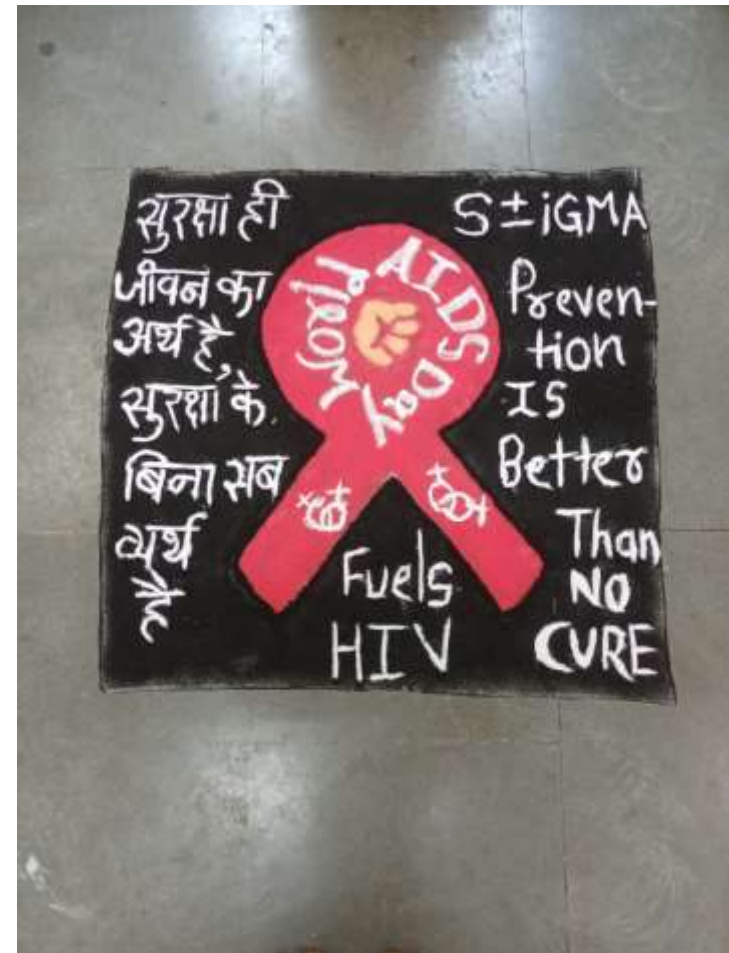 सुरक्षा ही
जीवन का
अर्थ है,
सुरक्षा के
बिना सब
व्यर्थ
है
World AIDS Day
S±iGMA
Preven-
tion
IS
Better
Than
NO
CURE
Fuels
HIV